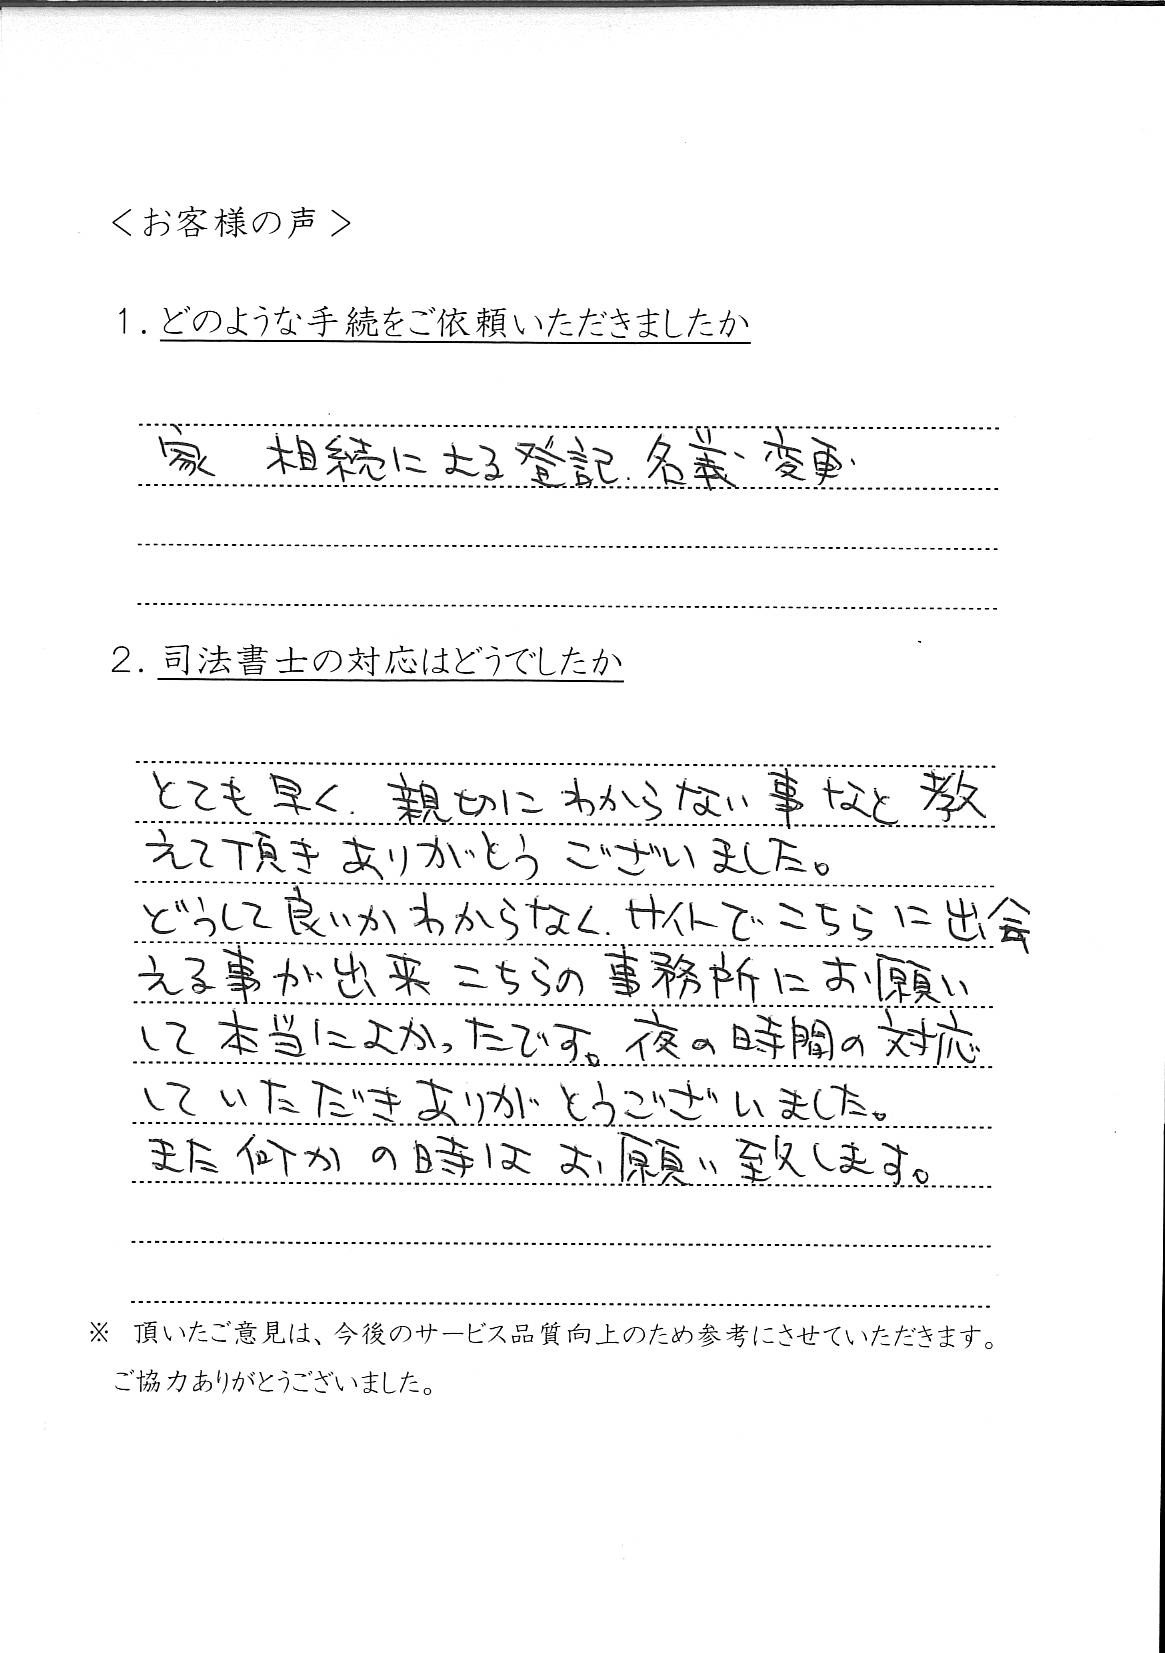 ＜お客様の声＞
1. どのような手続をご依頼いただきましたか
家　相続による登記.名義変更.
2. 司法書士の対応はどうでしたか
とても早く.親切にわからない事など教
えて頂きありがとうございました。
どうして良いかわからなく.サイトでこちらに出会
える事が出来こちらの事務所にお願い
して本当によかったです。夜の時間の対応
していただきありがとうございました。
また何かの時はお願い致します。
※　頂いたご意見は、今後のサービス品質向上のため参考にさせていただきます。
ご協力ありがとうございました。